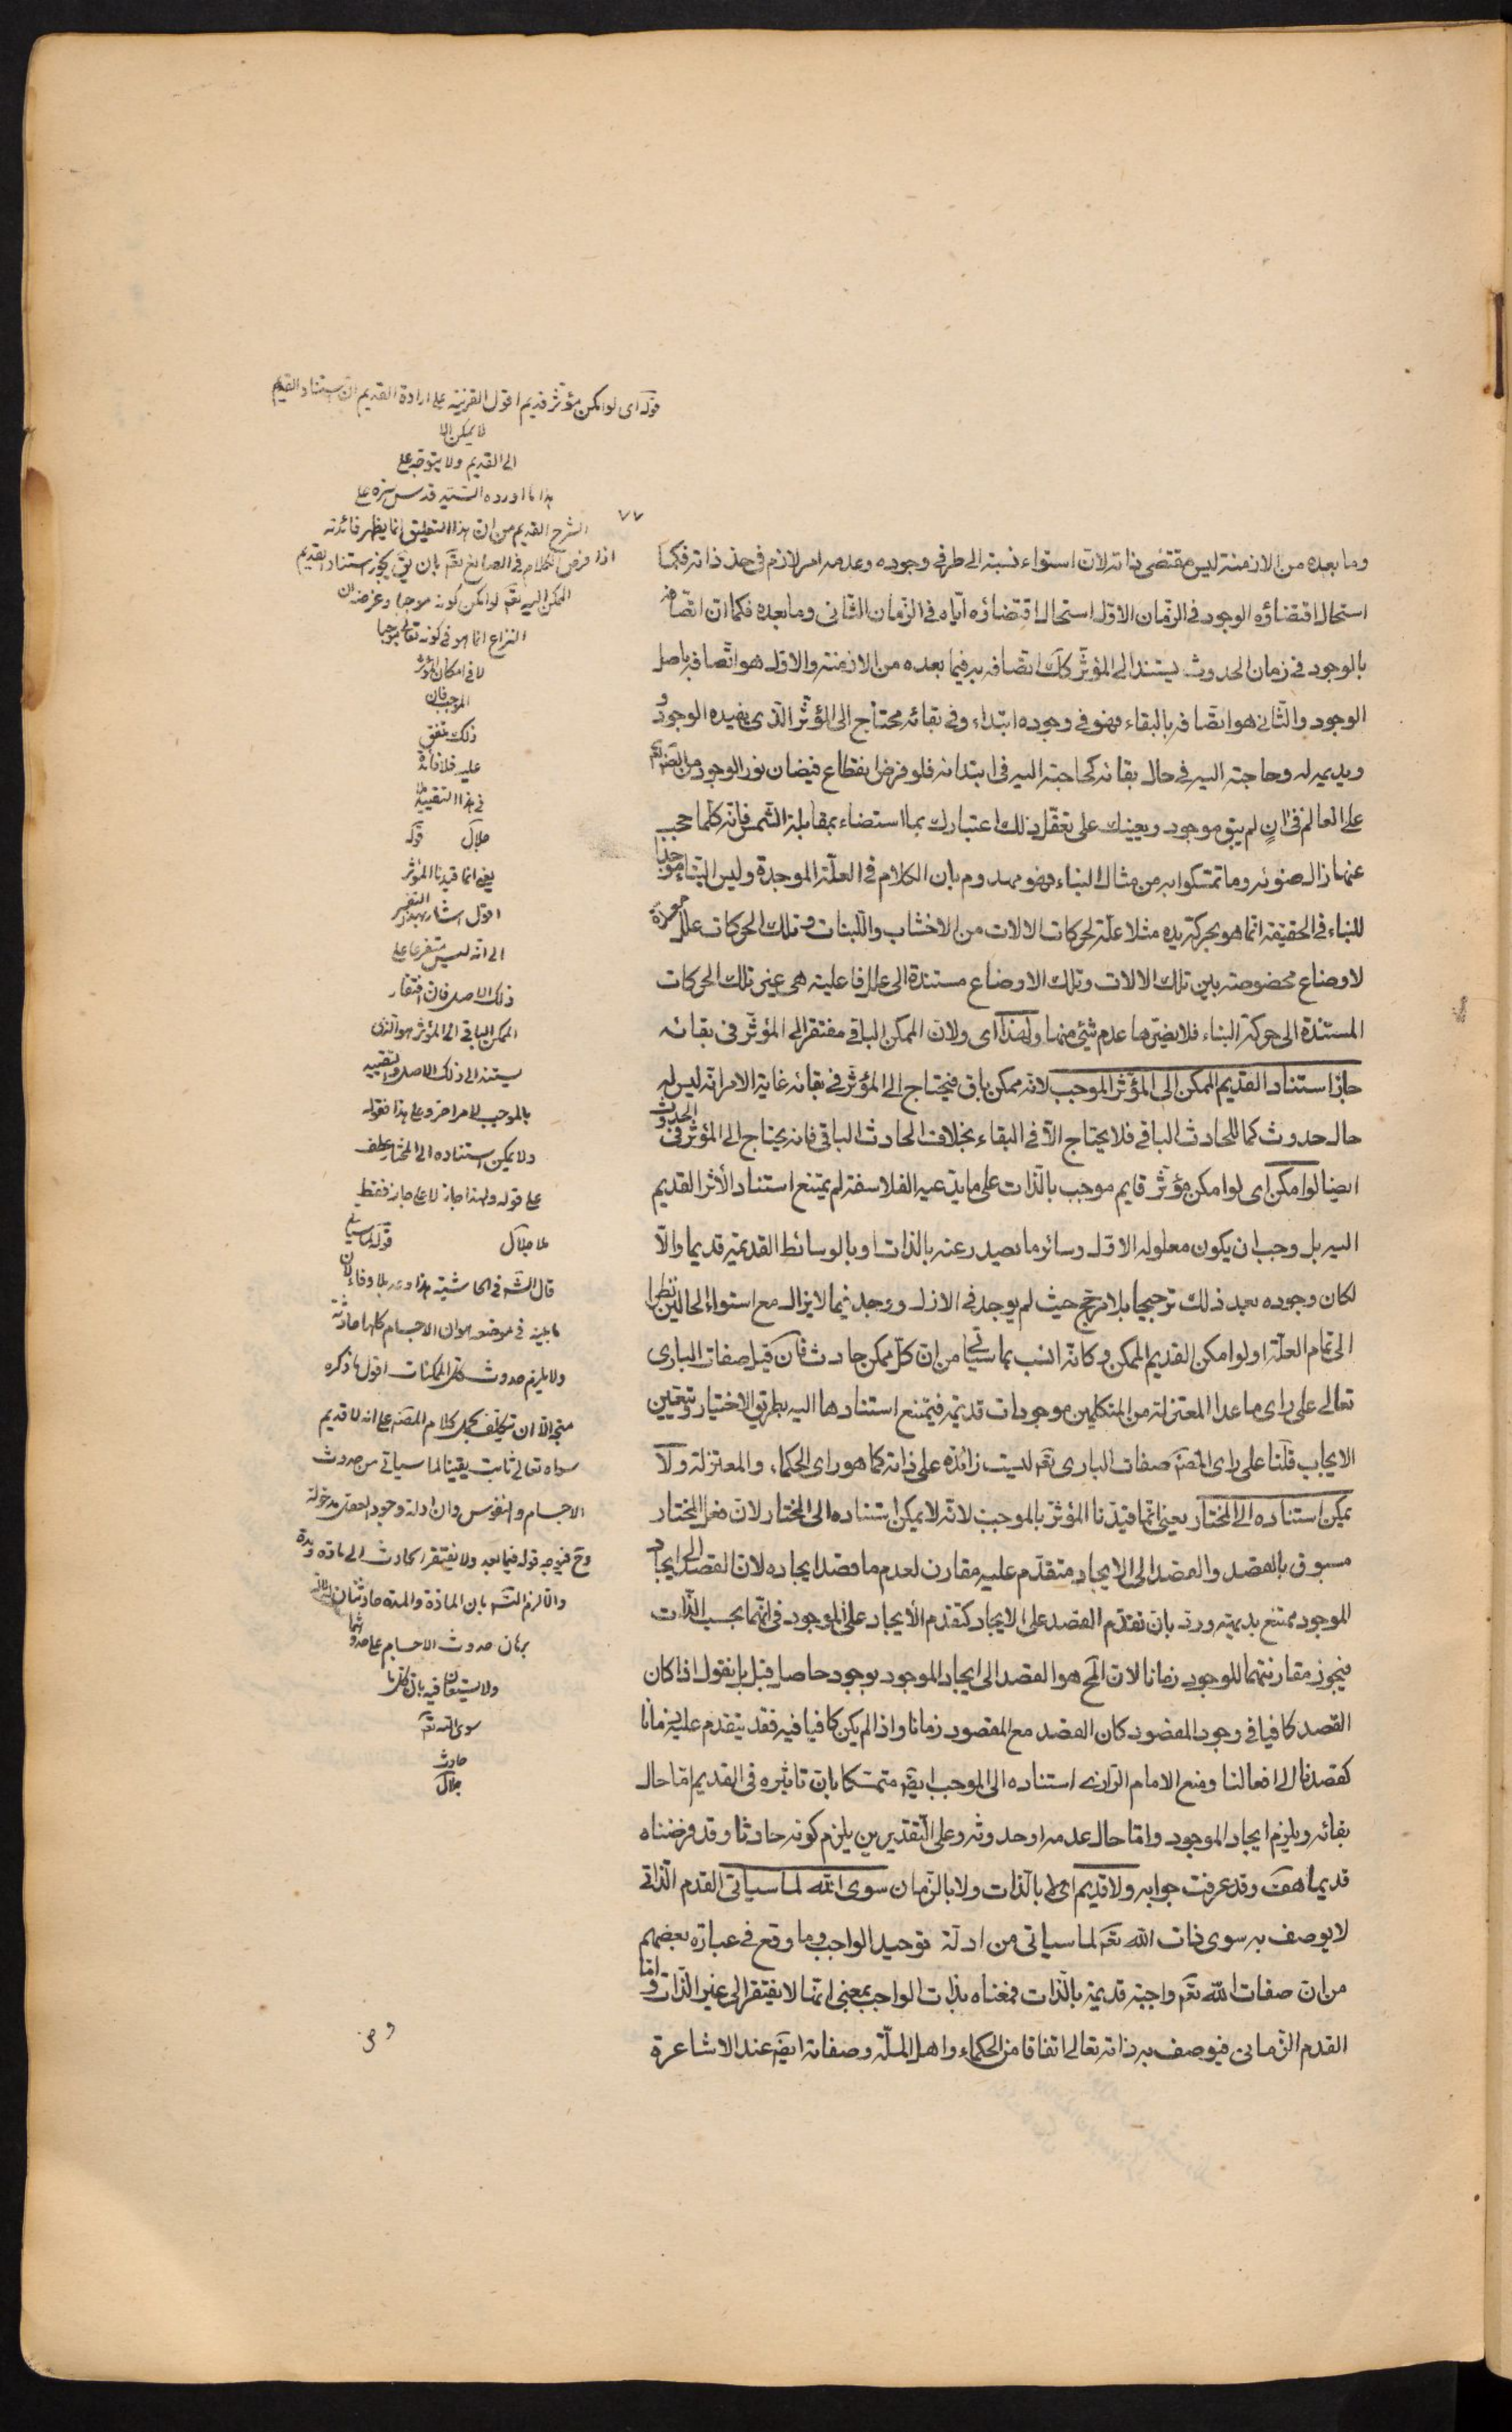 وما بعده من الازمنة ليس مقتضى ذاته لان استواء نسبته الى طرفى وجوده وعدمه امر لازم فى حد ذاته فكما
استحال اقتضاؤه الوجود فى الزمان الاول استحال اقتضاؤه اياه فى الزمان الثانى وما بعده فكما ان اتصافه
بالوجود فى زمان الحدوث يستند الى المؤثر كك اتصافه به فيما بعده من الازمنة والاول هو اتصافه باصل
الوجود والثانى هو اتصافه بالبقاء فهو فى وجوده ابتداء وفى بقائه محتاج الى المؤثر الذى يفيده الوجود و
ويديمه له وحاجته اليه فى حال بقائه كحاجته اليه فى ابتدائه فلو فرض انقطاع فيضان نور الوجود من
على العالم فى آنٍ لم يبق موجود ويعينك على تعقل ذلك اعتبارك بما استضاء بمقابلة الشمس فانه كلما حجب
عنها زال ضوئه وما تمسكوا به من مثال البناء فهو مهدوم بان الكلام فى العلة الموجدة وليس البناء موجدا
للبناء فى الحقيقة انما هو بحركة يده مثلا علة لحركات الالات من الاخشاب واللبنات وتلك الحركات علل معدة
لاوضاع مخصوصة بين تلك الالات وتلك الاوضاع مستندة الى علل فاعلية هى غير تلك الحركات
المستندة الى حركة البناء فلا يضرها عدم شئ منها ولهذا اى ولان الممكن الباقى مفتقر الى المؤثر فى بقائه
جاز استناد القديم الممكن الى المؤثر الموجب لانه ممكن باق فيحتاج الى المؤثر فى بقائه غاية الامر انه ليس له
حال حدوث كما للحادث الباقى فلا يحتاج الا فى البقاء بخلاف الحادث الباقى فانه يحتاج الى المؤثر فى الحدوث
ايضا لو امكن اى لو امكن مؤثر قايم موجب بالذات على ما يدعيه الفلاسفة لم يمتنع استناد الأثر القديم
اليه بل وجب ان يكون معلوله الاول وسائر ما يصدر عنه بالذات او بالوسائط القديمة قديما والا
لكان وجوده بعد ذلك ترجيحا بلا مرجح حيث لم يوجد فى الازل ووجد فيما لا يزال مع استواء الحالين نظرا
الى تمام العلة او لو امكن القديم الممكن وكانه انسب بما سيأتى من ان كل ممكن حادث فان قيل صفات البارى
تعالى على راى ما عدا المعتزلة من المتكلمين موجودات قديمة فيمتنع استنادها اليه بطريق الاختيار وتعين
الايجاب قلنا على راى المصنف صفات البارى تعم ليست زائدة على ذاته كما هو راى الحكماء والمعتزلة ولا
يمكن استناده الى المختار يعنى انما قيدنا المؤثر بالموجب لانه لا يمكن استناده الى المختار لان فعل المختار
مسبوق بالقصد والقصد الى الايجاد متقدم عليه مقارن لعدم ما قصد ايجاده لان القصد الى ايجاد
الموجود ممتنع بديهة ورد بان تقدم القصد على الايجاد كتقدم الأيجاد على الوجود فى انهما بحسب الذات
فيجوز مقارنتهما للوجود زمانا لان المح هو القصد الى ايجاد الموجود بوجود حاصل قبل بل نقول اذا كان
القصد كافيا فى وجود المقصود كان القصد مع المقصود زمانا واذا لم يكن كافيا فيه فقد يتقدم عليه زمانا
كقصدنا الى افعالنا ومنع الامام الرازى استناده الى الموجب ايضا متمسكا بان تاثيره فى القديم اما حال
بقائه ويلزم ايجاد الموجود واما حال عدمه او حدوثه وعلى التقديرين يلزم كونه حادثا وقد فرضناه
قديما هف وقد عرفت جوابه ولا قديم اى لا بالذات ولا بالزمان سوى الله لما سياتى القدم الذاتى
لا يوصف به سوى ذات الله تعم لما سياتى من ادلة توحيد الواجب وما وقع فى عبارة بعضهم
من ان صفات الله تعم واجبة قديمة بالذات فمعناه بذات الواجب بمعنى انها لا يفتقر الى غير الذات واما
القدم الزمانى فيوصف به ذاته تعالى اتفاقا من الحكماء واهل الملة وصفاته ايضا عند الاشاعرة
٧٧
قوله اى لو امكن مؤثر قديم اقول القرينة على ارادة القديم ان استناد القديم
لا يمكن الا
الى القديم ولا يتوجه على
هذا ما اورده السيد قدس سره على
الشرح القديم من ان هذا التعليق انما يظهر فائدته
اذا فرض الكلام فى الصانع تعم بان يق يجوز استناد القديم
الممكن اليه تعم لو امكن كونه موجبا وغرضه ان
النزاع انما هو فى كونه تعالى موجبا
لا فى امكان المؤثر
الموجب فان
ذلك متفق
عليه فلا فائدة
فى هذا التقييد
جلال قوله
يعنى انما قيدنا المؤثر
اقول اشار بهذا التفسير
الى انه ليس متفرعا على
ذلك الاصل فان افتقار
الممكن الباقى الى المؤثر هو الذى
يستند الى ذلك الاصل والتقييد
بالموجب لامر اخر وعلى هذا فقوله
ولا يمكن استناده الى المختار عطف
على قوله ولهذا جاز لا على جاز فقط
ملا جلال قوله لما سياتى
قال الشه فى الحاشية هذا وعد بلا وفاء لان
ما بينه فى موضعه هو ان الاجسام كلها حادثة
ولا يلزم حدوث كل الممكنات اقول ما ذكره
متجه الا ان تكلف بحمل كلام المصنف على انه لا قديم
سواه تعالى ثابت يقينا لما سياتى من حدوث
الاجسام والنفوس وان ادلة وجود العقل مدخولة
وح فيوجه قوله فيما بعد ولا يفتقر الحادث الى مادة ومدة
والا لزم التسلسل بان المادة والمدة حادثتان
برهان حدوث الاجسام على حدوثهما
ولا يستعان فيه بان كل ما
سوى الله تعم
حادث
جلال